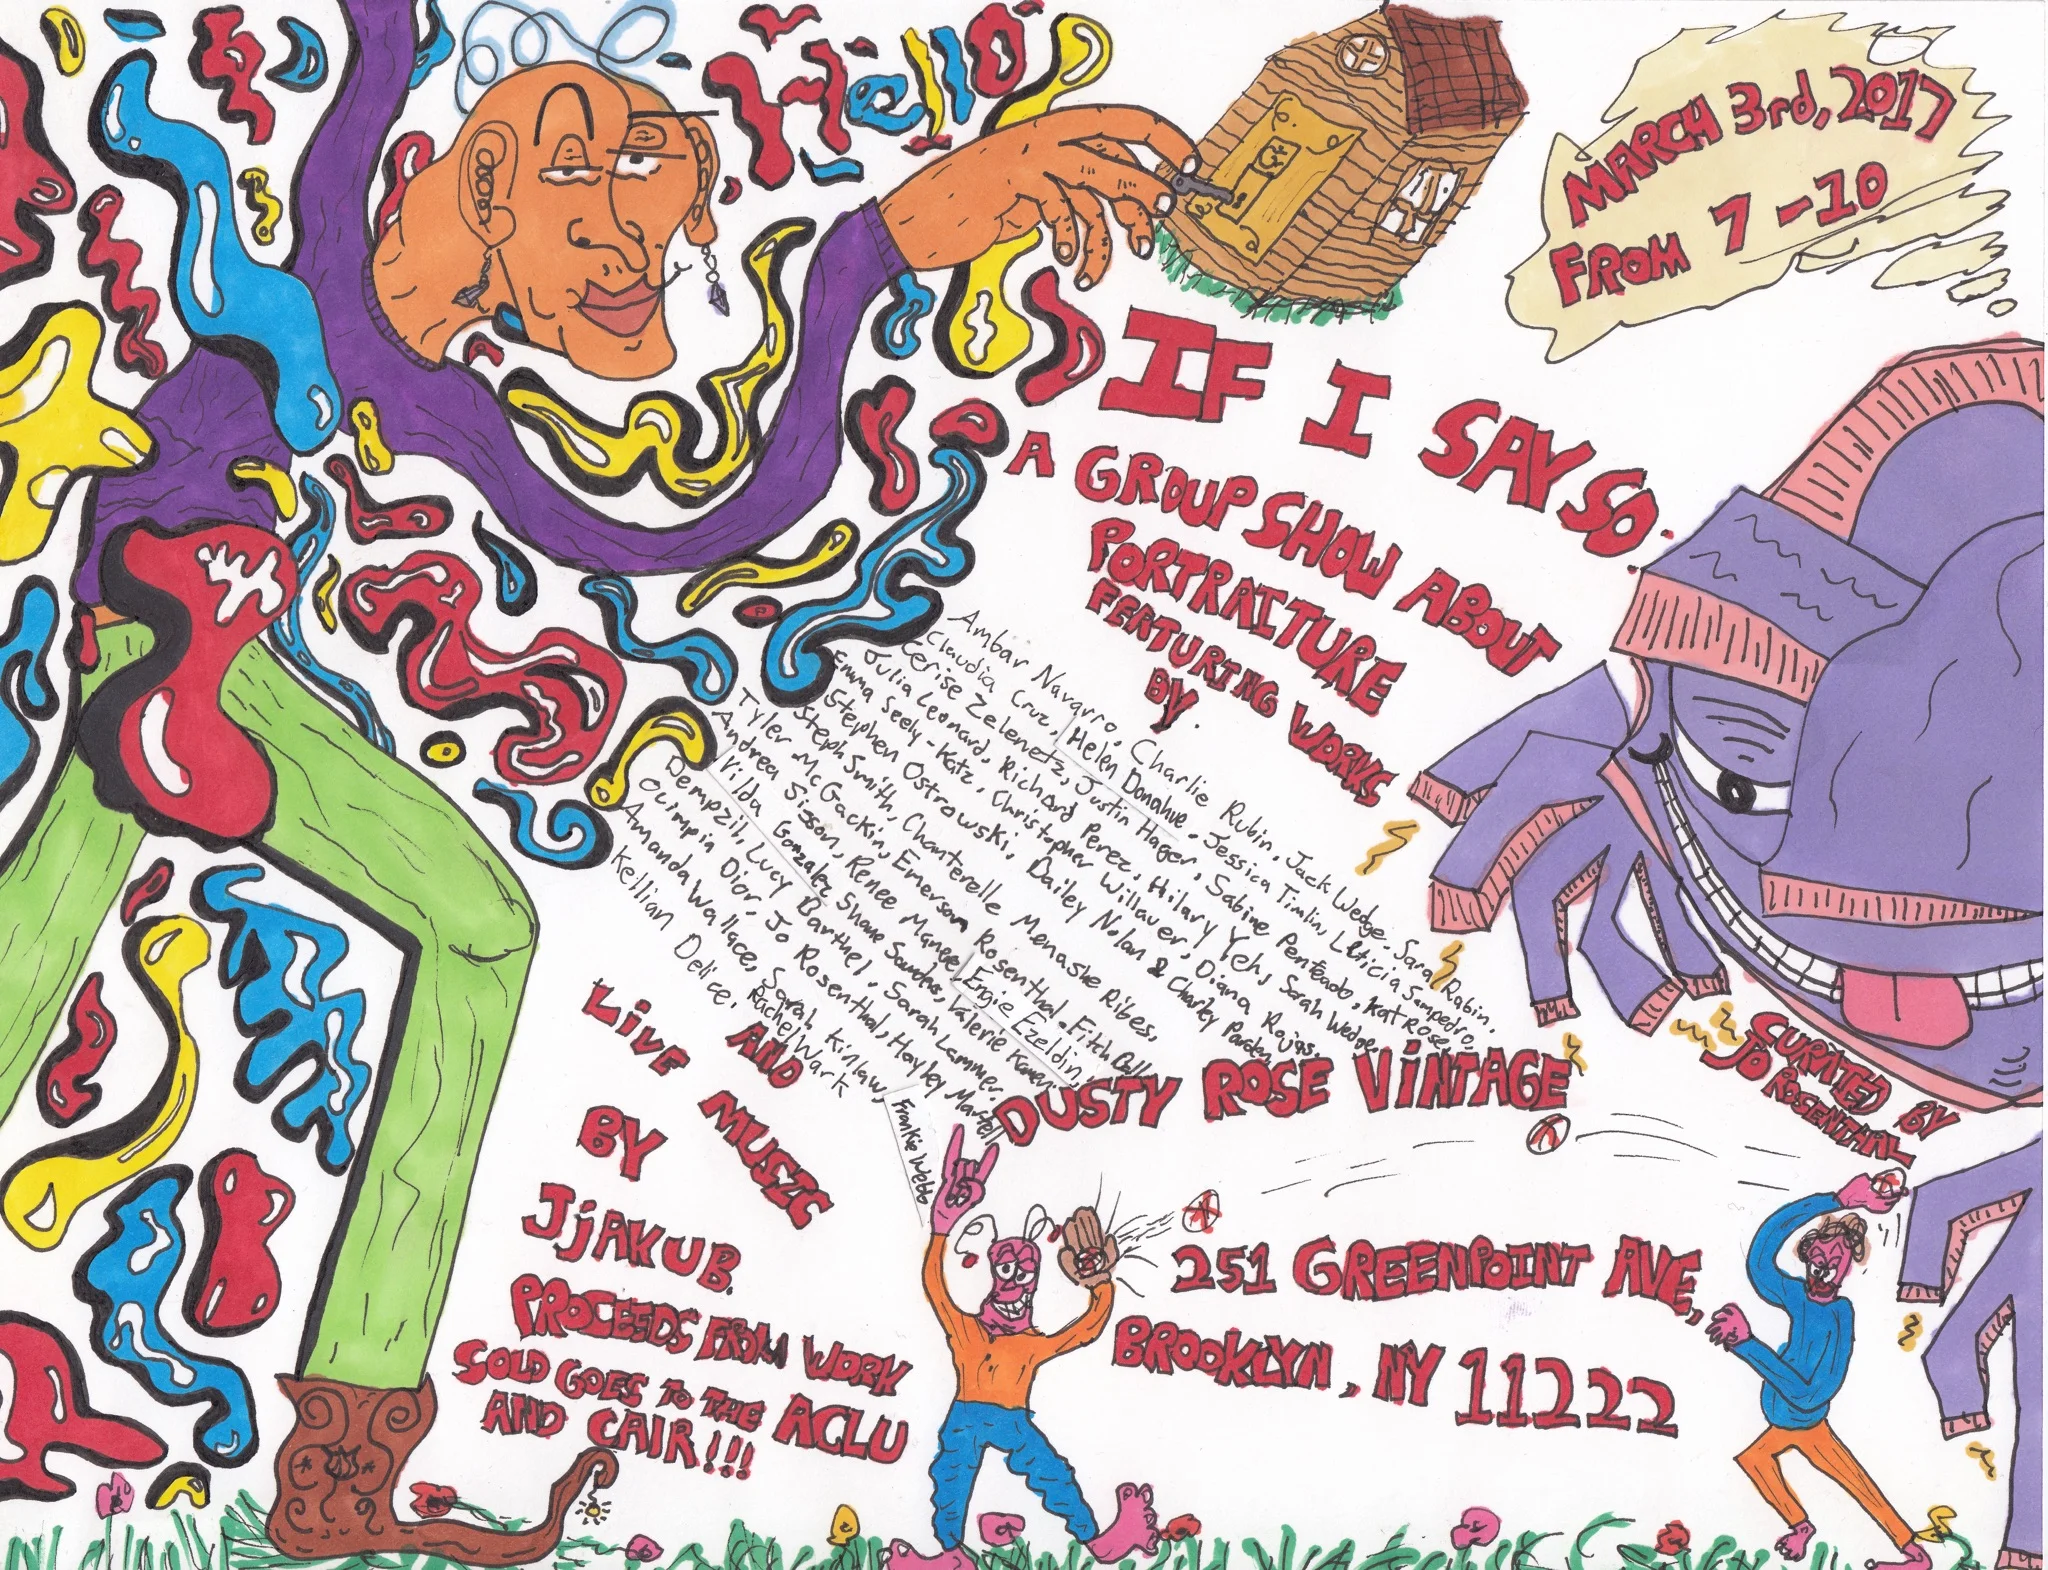 Hello
MARCH 3rd, 2017
FROM 7-10
IF I SAY SO.
A GROUP SHOW ABOUT
PORTRAITURE
FEATURING WORKS
BY.
Ambar Navarro, Charlie Rubin, Jack Wedge, Sara Rabin,
Claudia Cruz, Helen Donahue, Jessica Timlin, Leticia Sampedro,
Cerise Zelenetz, Justin Hager, Sabine Penteado, Kat Rose,
Julia Leonard, Richard Perez, Hilary Yeh, Sarah Wedge,
Emma Seely-Katz, Christopher Willauer, Diana Rojas,
Stephen Ostrowski, Dailey Nolan & Charley Parden,
Steph Smith, Chanterelle Menashe Ribes,
Tyler McGackin, Emerson Rosenthal, Fitch
Andrea Sisson, Renee Maree, Engie Ezeldin,
Vilda Gonzalez, Shane Saunders, Valerie
Dempzil, Lucy Barthel, Sarah Lammer,
Olimpia Dior, Jo Rosenthal, Hayley Martell
Amanda Wallace, Sarah Kinlaw,
Kellian Delice, Rachel Wark
Frankie Webb
AND
LIVE MUSIC
BY
JjAKUB.
PROCEEDS FROM WORK
SOLD GOES TO THE ACLU
AND CAIR!!!
DUSTY ROSE VINTAGE
251 GREENPOINT AVE,
BROOKLYN, NY 11222
CURATED BY
JO ROSENTHAL